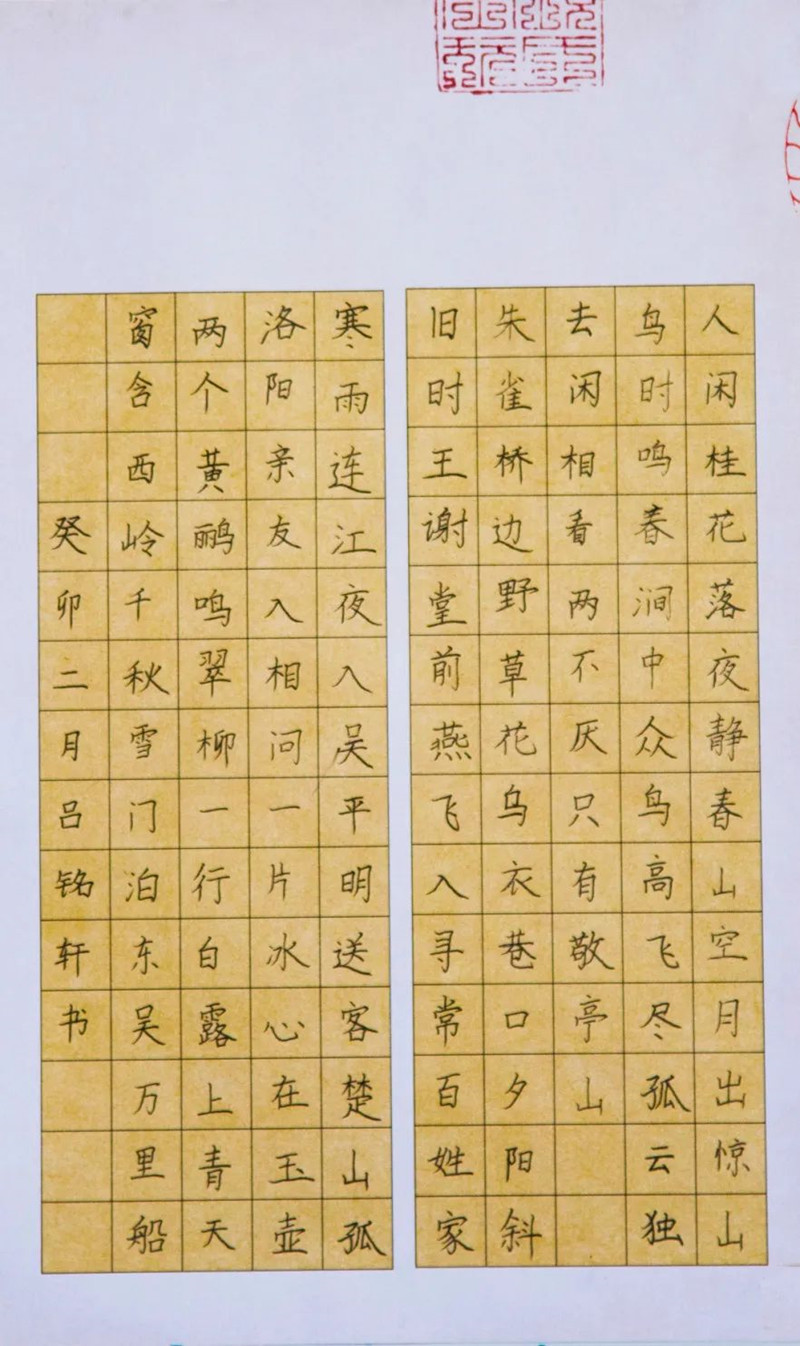 人闲桂花落夜静春山空月出惊山
鸟时鸣春涧中众鸟高飞尽孤云独
去闲相看两不厌只有敬亭山
朱雀桥边野草花乌衣巷口夕阳斜
旧时王谢堂前燕飞入寻常百姓家
寒雨连江夜入吴平明送客楚山孤
洛阳亲友入相问一片冰心在玉壶
两个黄鹂鸣翠柳一行白露上青天
窗含西岭千秋雪门泊东吴万里船
癸卯二月吕铭轩书